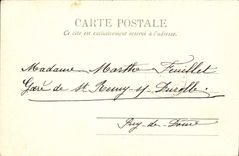 CARTE POSTALE
Ce côté est exclusivement réservé à l'adresse.
Madame Marthe Feuillet
Gare de St Remy s/ Durolle
Puy-de-Dôme